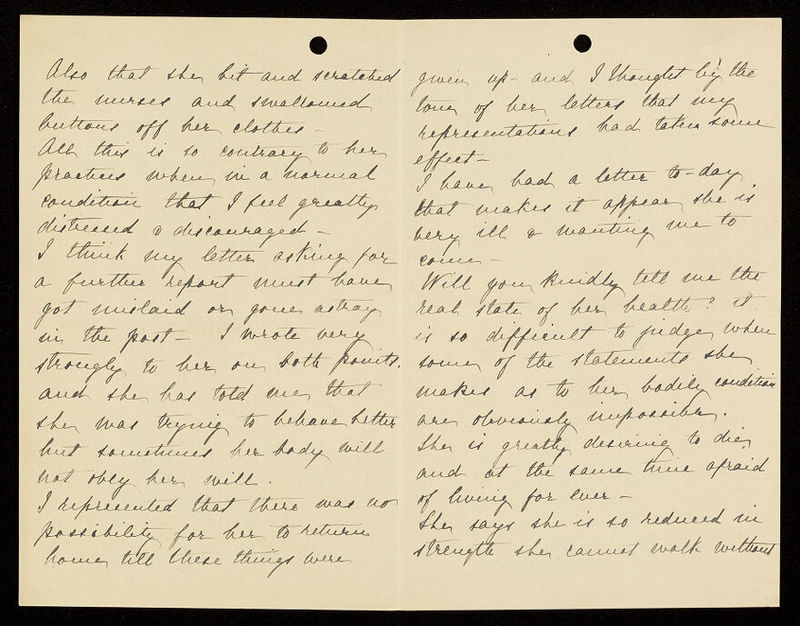 Also that she bit and scratched
the nurses and swallowed
buttons off her clothes –
All this is so contrary to her
practices when in a normal
condition that I feel greatly
distressed & discouraged –
I think my letter asking for
a further report must have
got mislaid or gone astray
in the post – I wrote very
strongly to her on both points.
and she has told me that
she was trying to behave better
but sometimes her body will
not obey her will.
I represented that there was no
possibility for her to return
home till these things were
given up – and I thought by the
tone of her letters that my
representations had taken some
effect –
I have had a letter to-day
that makes it appear she is
very ill & wanting me to
come –
Will you kindly tell me the
real state of her health? it
is so difficult to judge when
some of the statements she
makes as to her bodily condition
are obviously impossible.
She is greatly desiring to die
and at the same time afraid
of living for ever –
She says she is so reduced in
strength she cannot walk without